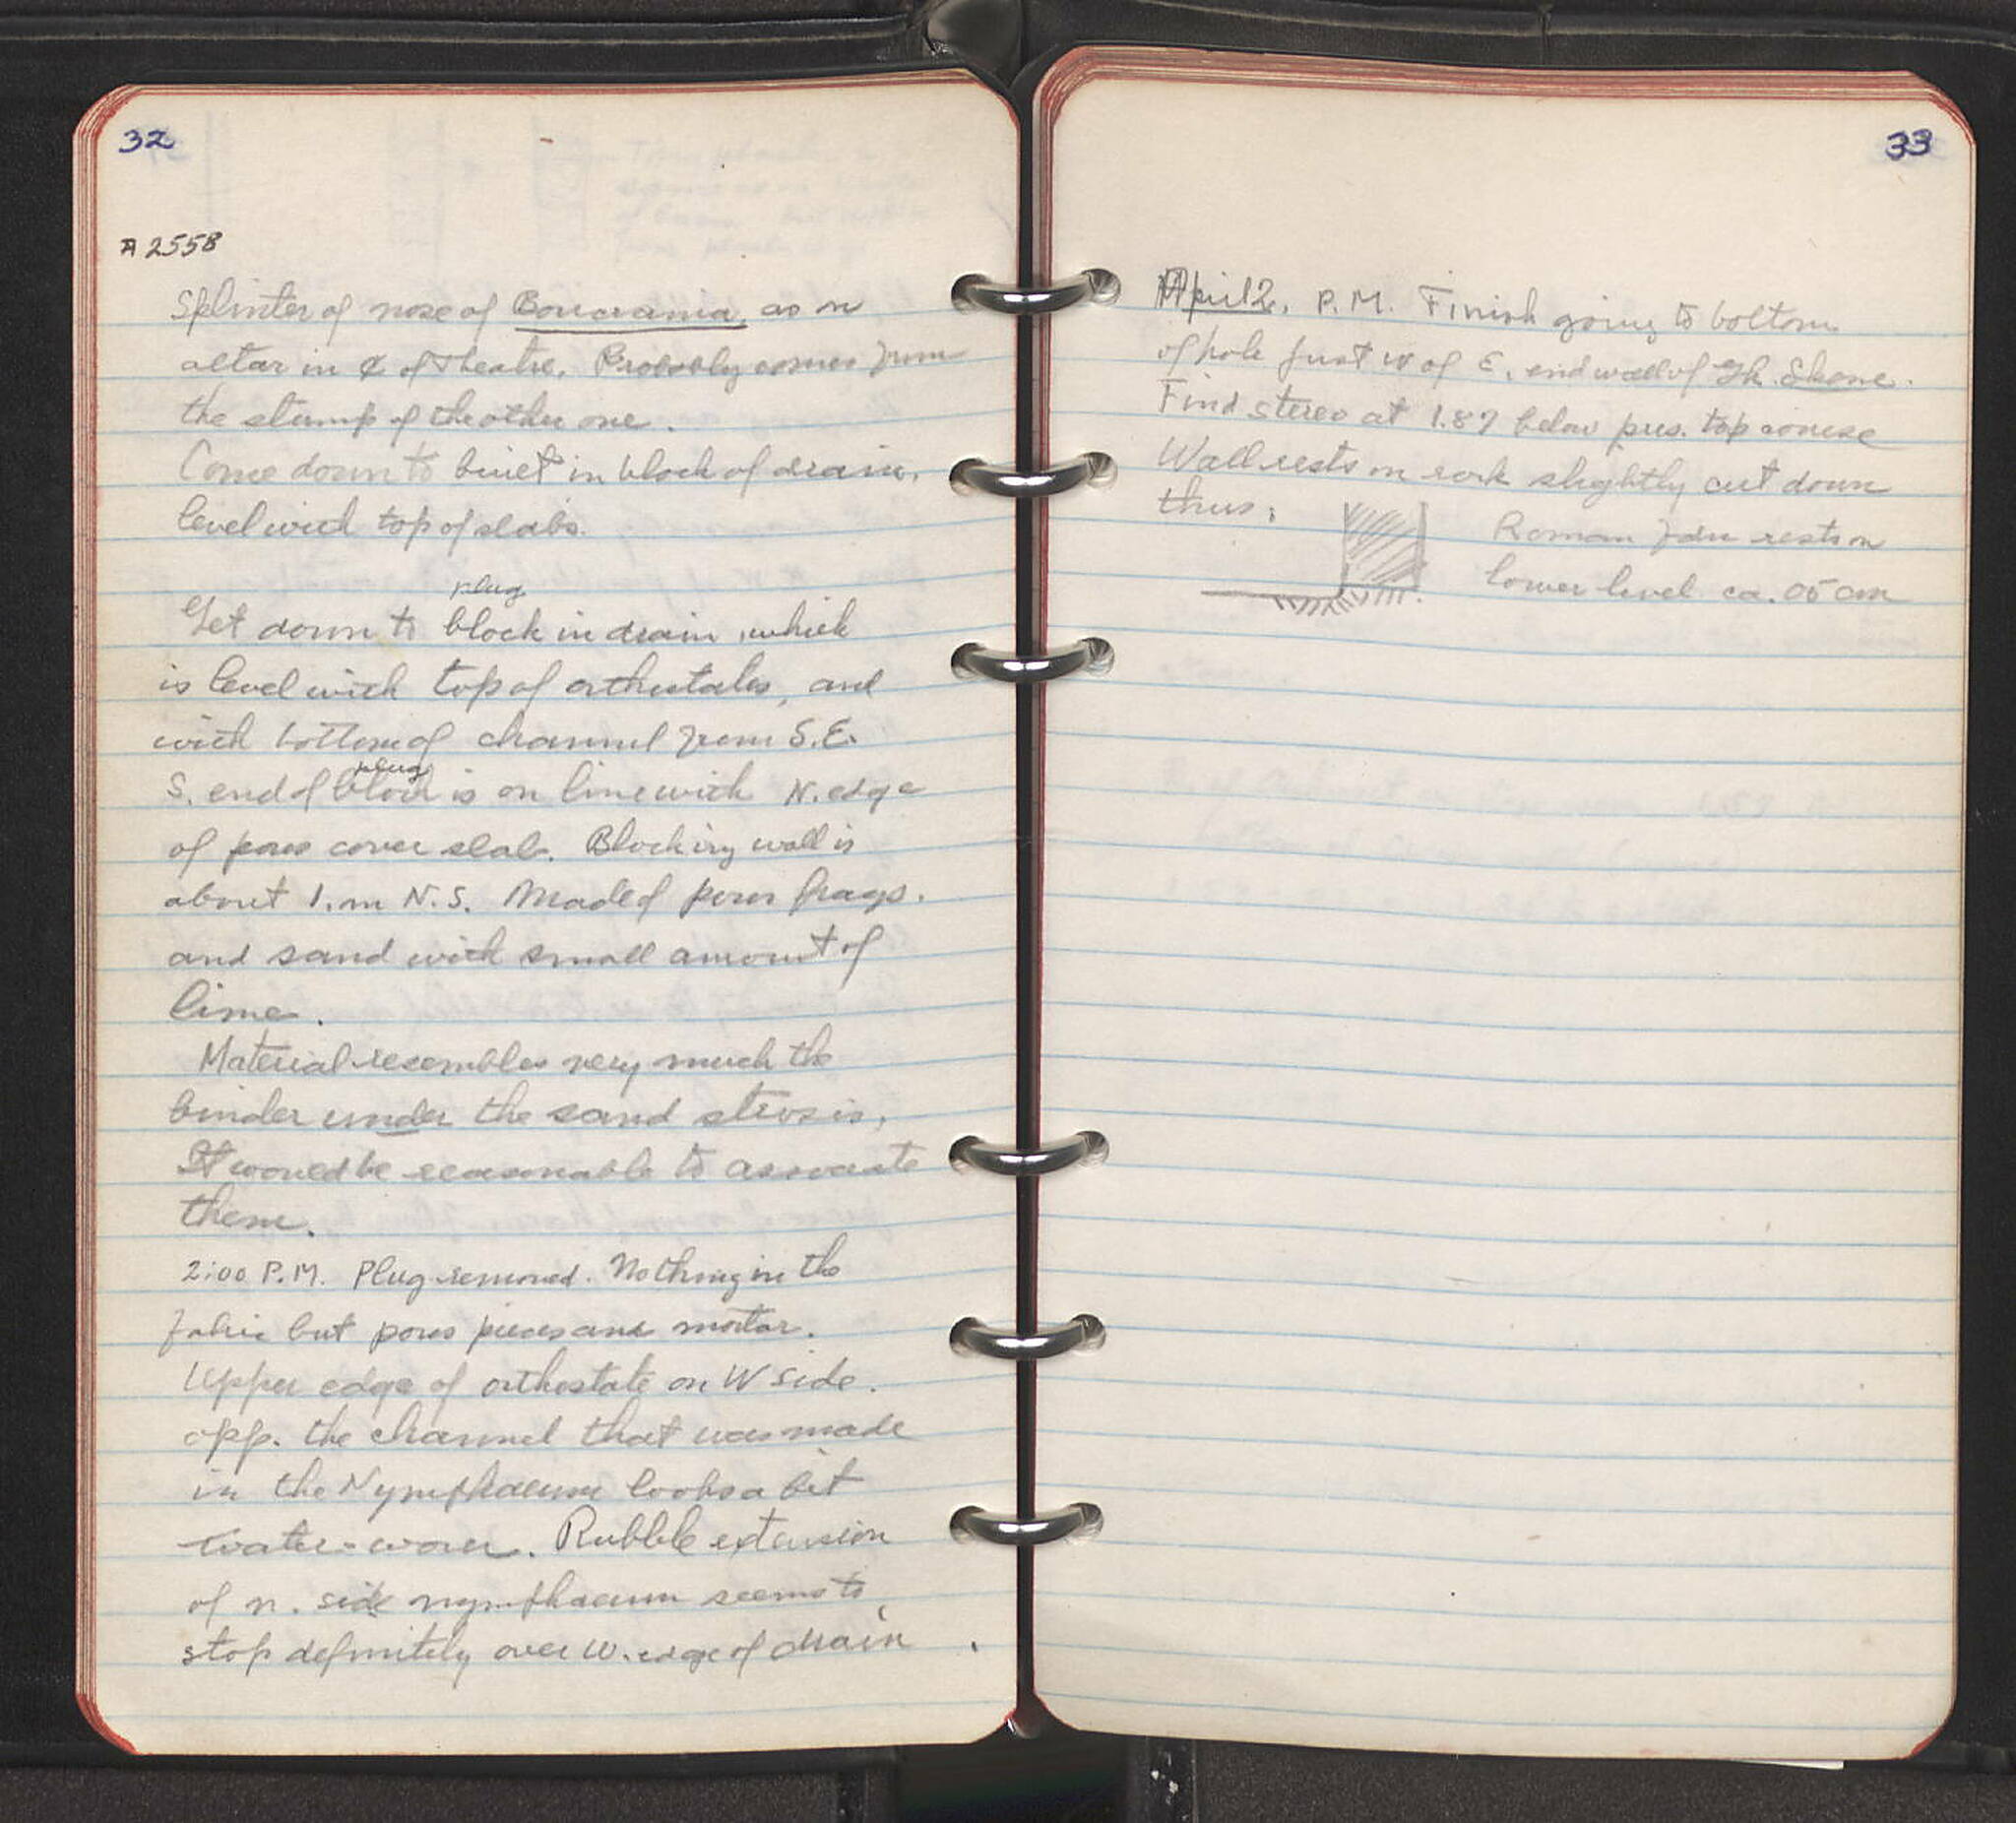 32
A 2558
Splinter of nose of Boucrania, as on
altar in ₵ of Theatre. Probably comes from
the stump of the other one.
Come down to built in block of drain,
level with top of slabs.
plug
Get down to block in drain, which
is level with top of orthostates, and
with bottom of channel from S.E.
plug
S. end of block is on line with N. edge
of poros cover slab. Blocking wall is
about 1. m N.S. Made of poros frags.
and sand with small amount of
lime.
Material resembles very much the
binder under the sand strosis.
It would be reasonable to associate
them.
2:00 P.M. Plug removed. Nothing in the
fabric but poros pieces and mortar.
Upper edge of orthostate on W side.
opp. the channel that was made
in the Nymphaeum looks a bit
water-worn. Rubble extension
of n. side nymphaeum seems to
stop definitely over W. edge of drain.
33
April 2. P.M. Finish going to bottom
of hole just W of E. end wall of Gk. Skene.
Find stereo at 1.87 below pres. top course
Wall rests on rock slightly cut down
thus:
Roman fdn rests on
lower level ca. 05 cm